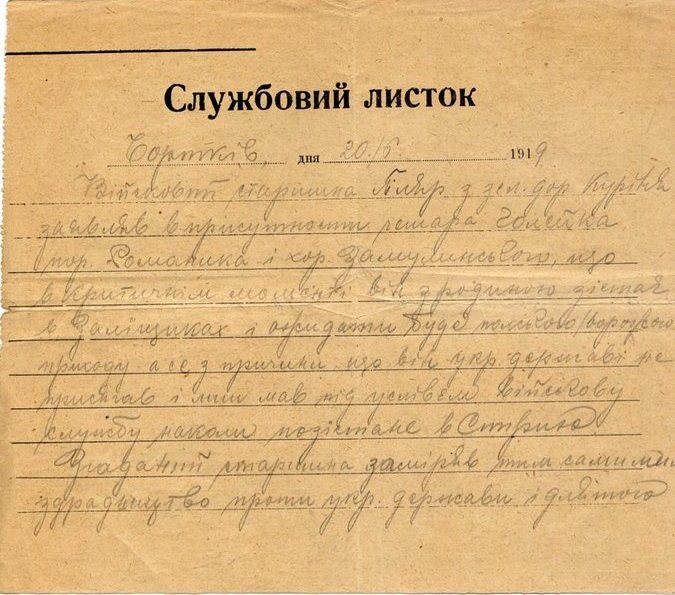 Службовий листок
Чортків, дня 20./6 1919
Військовий старшина Гіляр з зел. дор. Куріня
заявляв в присутности
пор. Романика і хор. Замулинського, що
в критичнім моменті він з родиною дістая
в Заліщиках і ожидати буде польського/ворожого
приходу а се з причини що він укр. державі не
присягав і лиш мав під услівєм військову
службу
Згаданий старшина заміряв тим самим
здрадництво проти укр. держави і для того